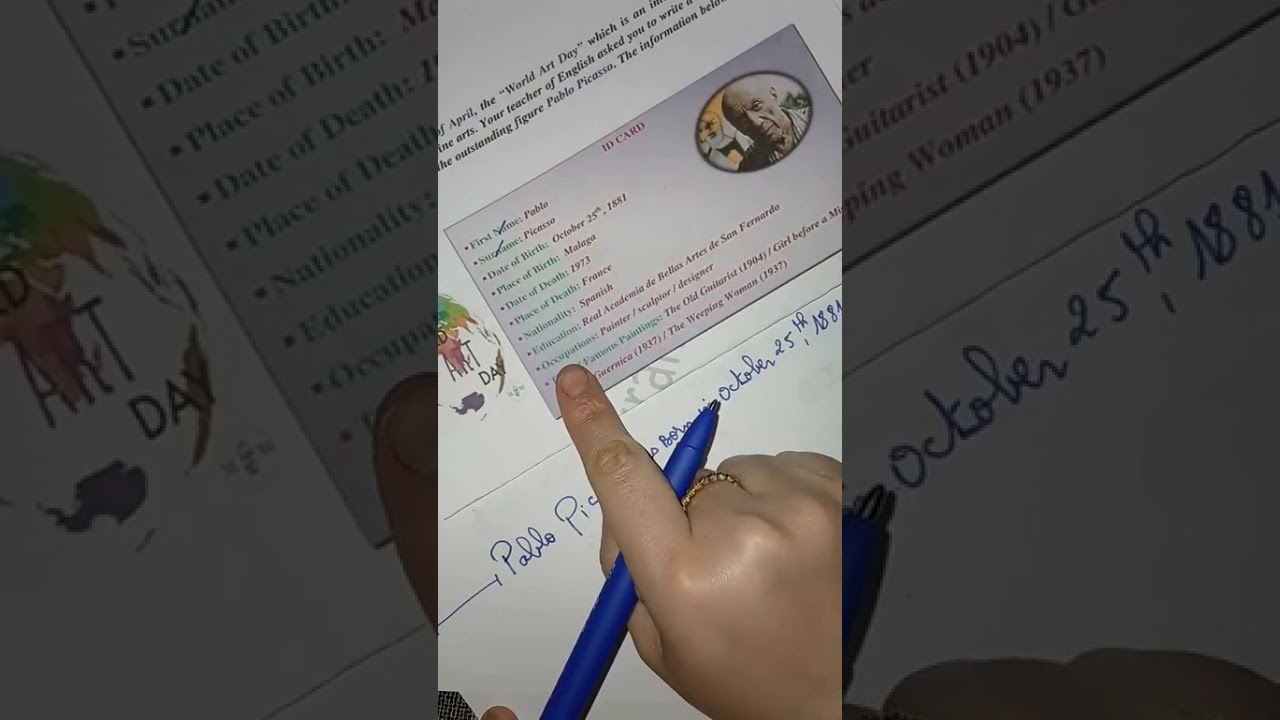 of April, the "World Art Day" which is an
ine arts. Your teacher of English asked you to write a
the outstanding figure Pablo Picasso. The information below
ID CARD
• First Name: Pablo
• Surname: Picasso
• Date of Birth: October 25th, 1881
• Place of Birth: Malaga
• Date of Death: 1973
• Place of Death: France
• Nationality: Spanish
• Education: Real Academia de Bellas Artes de San Fernardo
• Occupations: Painter / sculptor / designer
Famous Paintings: The Old Guitarist (1904) / Girl before a
Guernica (1937) / The Weeping Woman (1937)
ART
DAY
Pablo Born October 25th, 1881